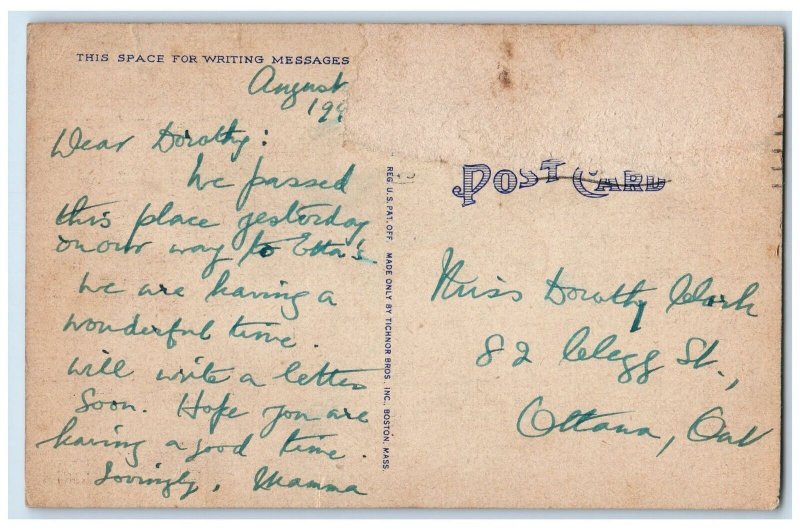 THIS SPACE FOR WRITING MESSAGES
August
194
Dear Dorothy:
We passed
this place yesterday
on our way to Etta's
We are having a
wonderful time.
will write a letter
soon. Hope you are
having a good time.
Lovingly, Mamma
REG. U.S. PAT. OFF. MADE ONLY BY TICHNOR BROS., INC., BOSTON, MASS.
POST CARD
Miss Dorothy Clark
82 Clegg St.,
Ottawa, Ont